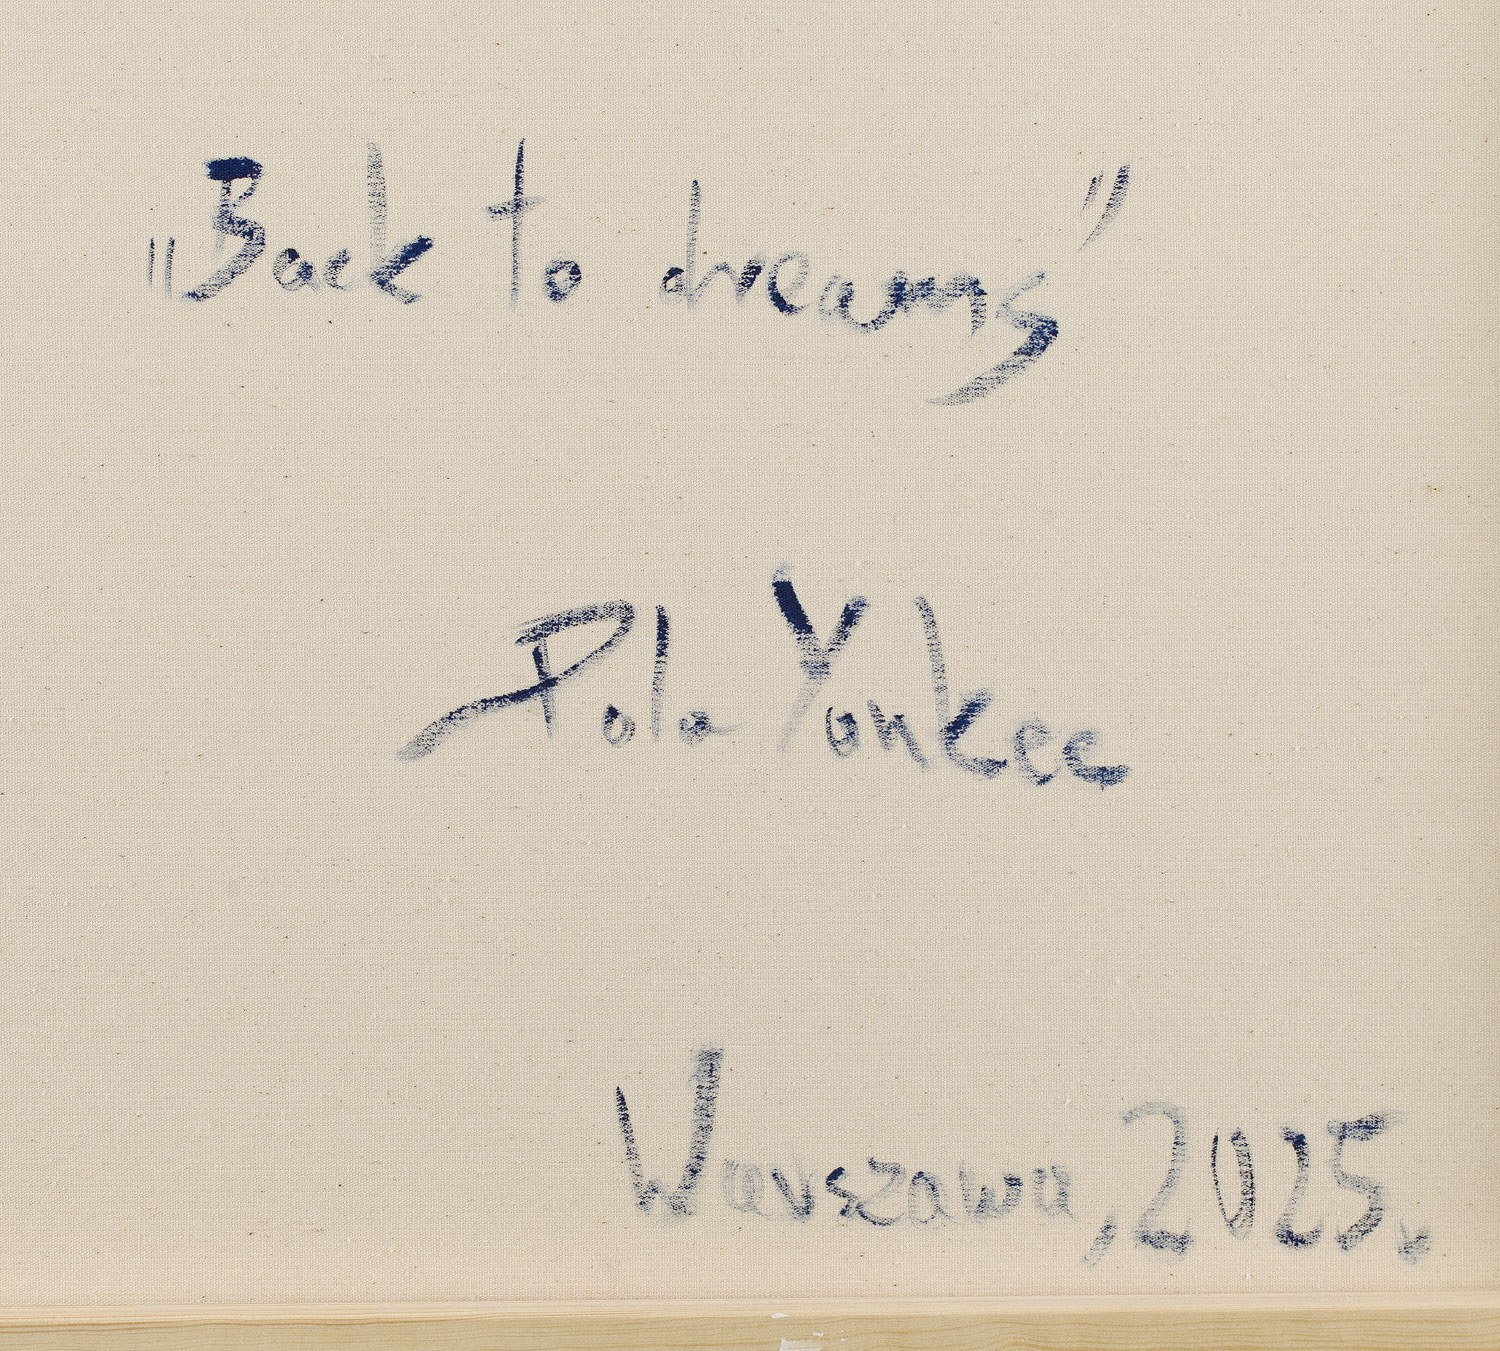 „Back to dreams"
Pola Yonkee
Warszawa, 2025.